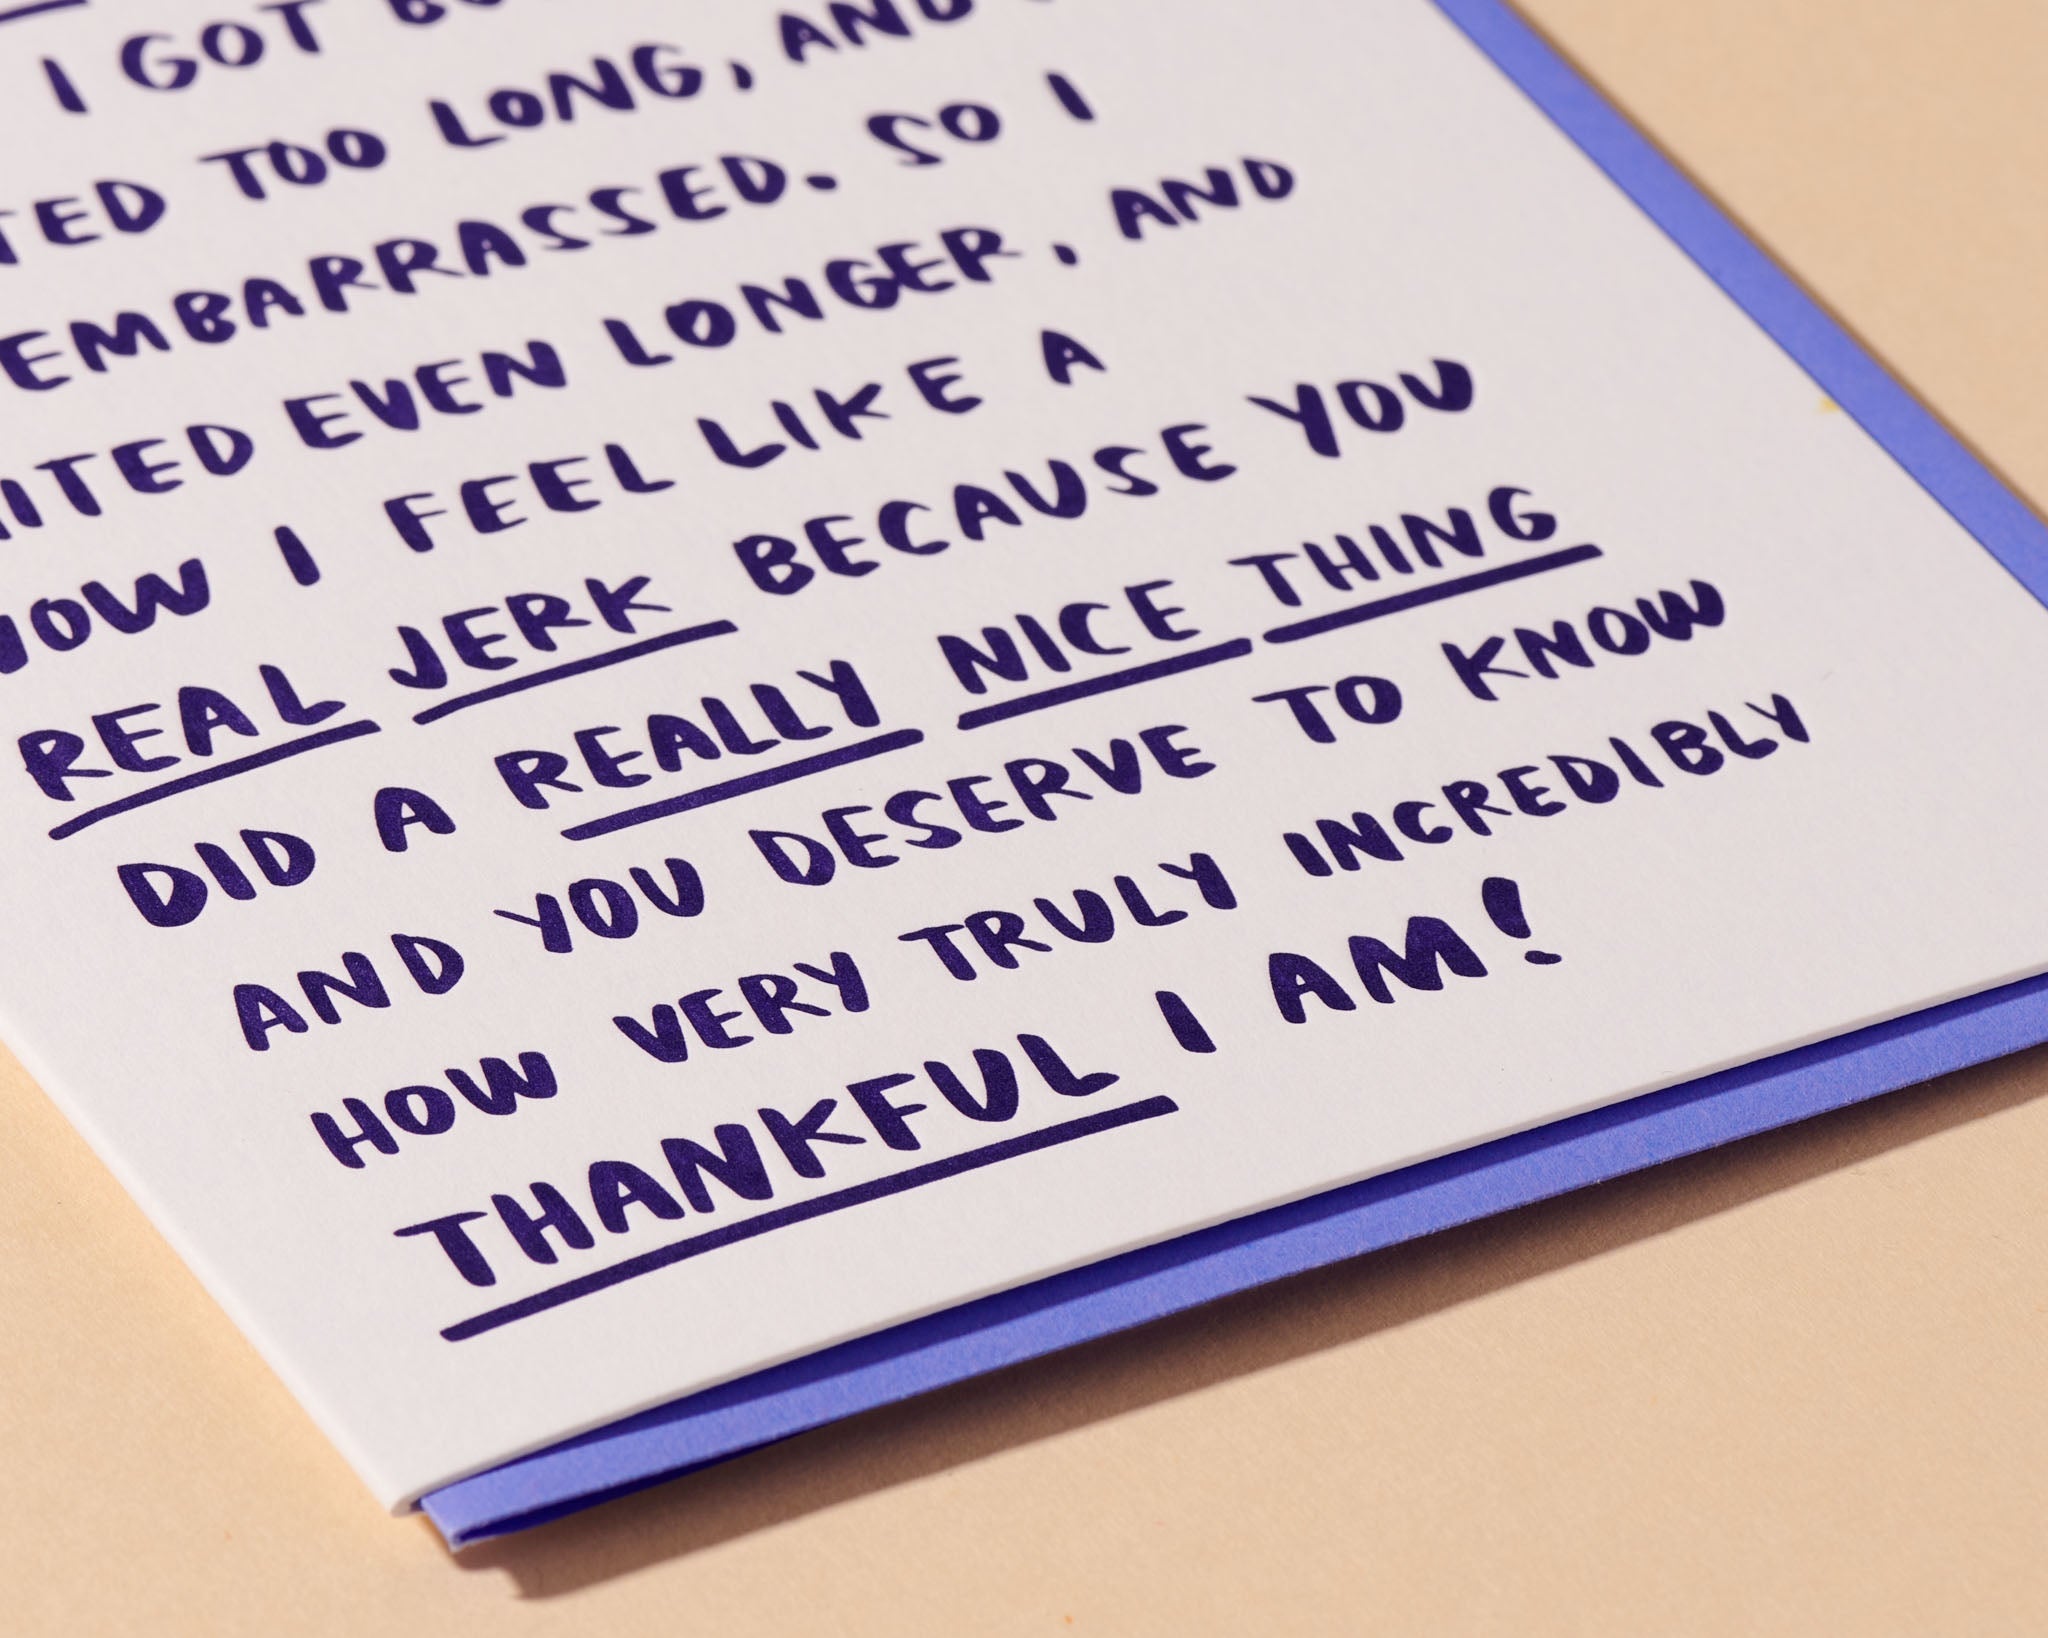 I GOT
TOO LONG, AND
EMBARRASSED. SO I
EVEN LONGER, AND
NOW I FEEL LIKE A
REAL JERK BECAUSE YOU
DID A REALLY NICE THING
AND YOU DESERVE TO KNOW
HOW VERY TRULY INCREDIBLY
THANKFUL I AM!